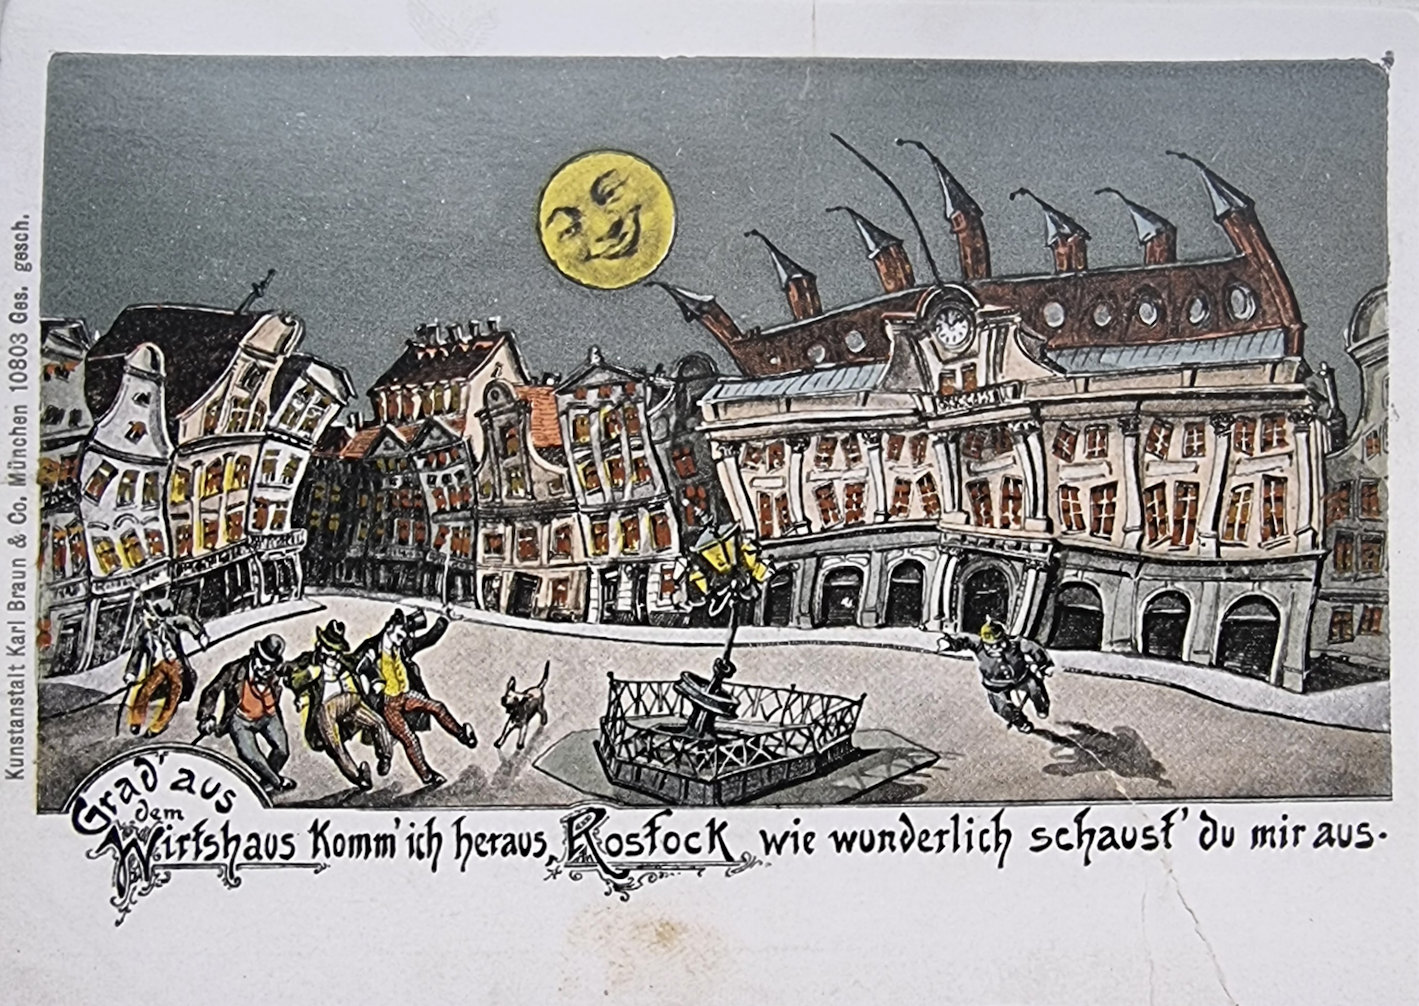 Kunstanstalt Karl Braun & Co. München 10803 Ges. gesch.
Grad' aus
dem
Wirtshaus Komm' ich heraus, Rostock wie wunderlich schaust' du mir aus.